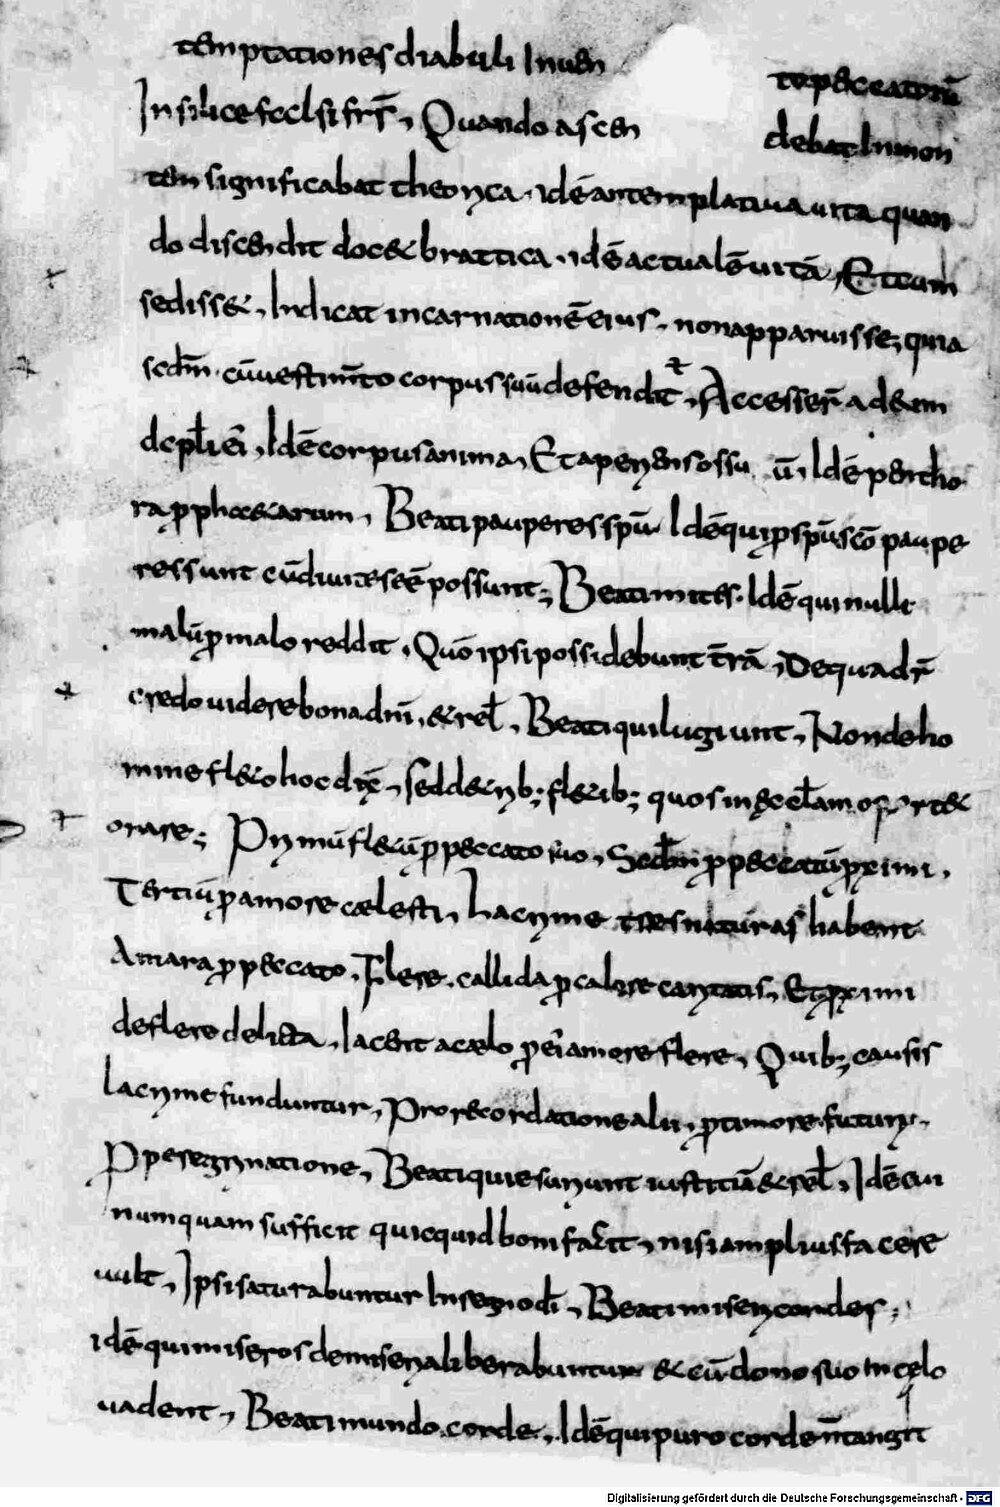 temptationes diabuli Inuen topeccatorū
In silice scclsi frr̄, Quando ascen debat In mon
tem significabat theoryca · idē contemplatiua uita quan
do discendit doc& brattica · idē actualē uitā, Et cum
sediss&, Indicat incarnationē eius, non apparuisse, quia
scdm̄ · cū uestim̄to corpus suū defendit, Accesser̄ ad eum
Idē corpus anima, Et aperyens os suū, Idē per tho
raꝓph&arum, Beati pauperes spū · Idē qui ꝓ spū scō paupe
res sunt cū diuites eē possunt; Beati mites · Idē qui nulli
malū ꝓ malo reddit, Quō ipsi possidebunt t̄rā, De qua dr̄
credo uidere bona dn̄i, & rel̄, Beati qui lugiunt, Non de ho
mine fl&o hoc dix̄, sed de tryb; fl&ib; quos in orare;
Prymū fl&ū ꝓ peccato suo, Scdm̄ ꝓ peccatū ꝓximi,
Tertiū ꝓ amore cælesti, Lacryme tres naturas habent
Amara ꝓ peccato, Flere, callida ꝓ calore carytatis, Et ꝓximi
deflere delicta, Iacent a cælo ꝓ ei amore flere, Quib; causis
lacryme funduntur, Pro recordatione alii, ꝓ timore futury,
Ꝓ peregrynatione, Beati qui esuryunt iustitiā & rel̄, Idē cui
numquam sufficit quicquid boni facit, nisi amplius facere
uult, Ipsi saturabuntur In regno dī, Beati miserycordes;
idē qui miseros de miserya liberabuntur & cū dono suo In cęlo
uadent, Beati mundo corde, Idē qui puro corde n̄ tangit
Digitalisierung gefördert durch die Deutsche Forschungsgemeinschaft - DFG